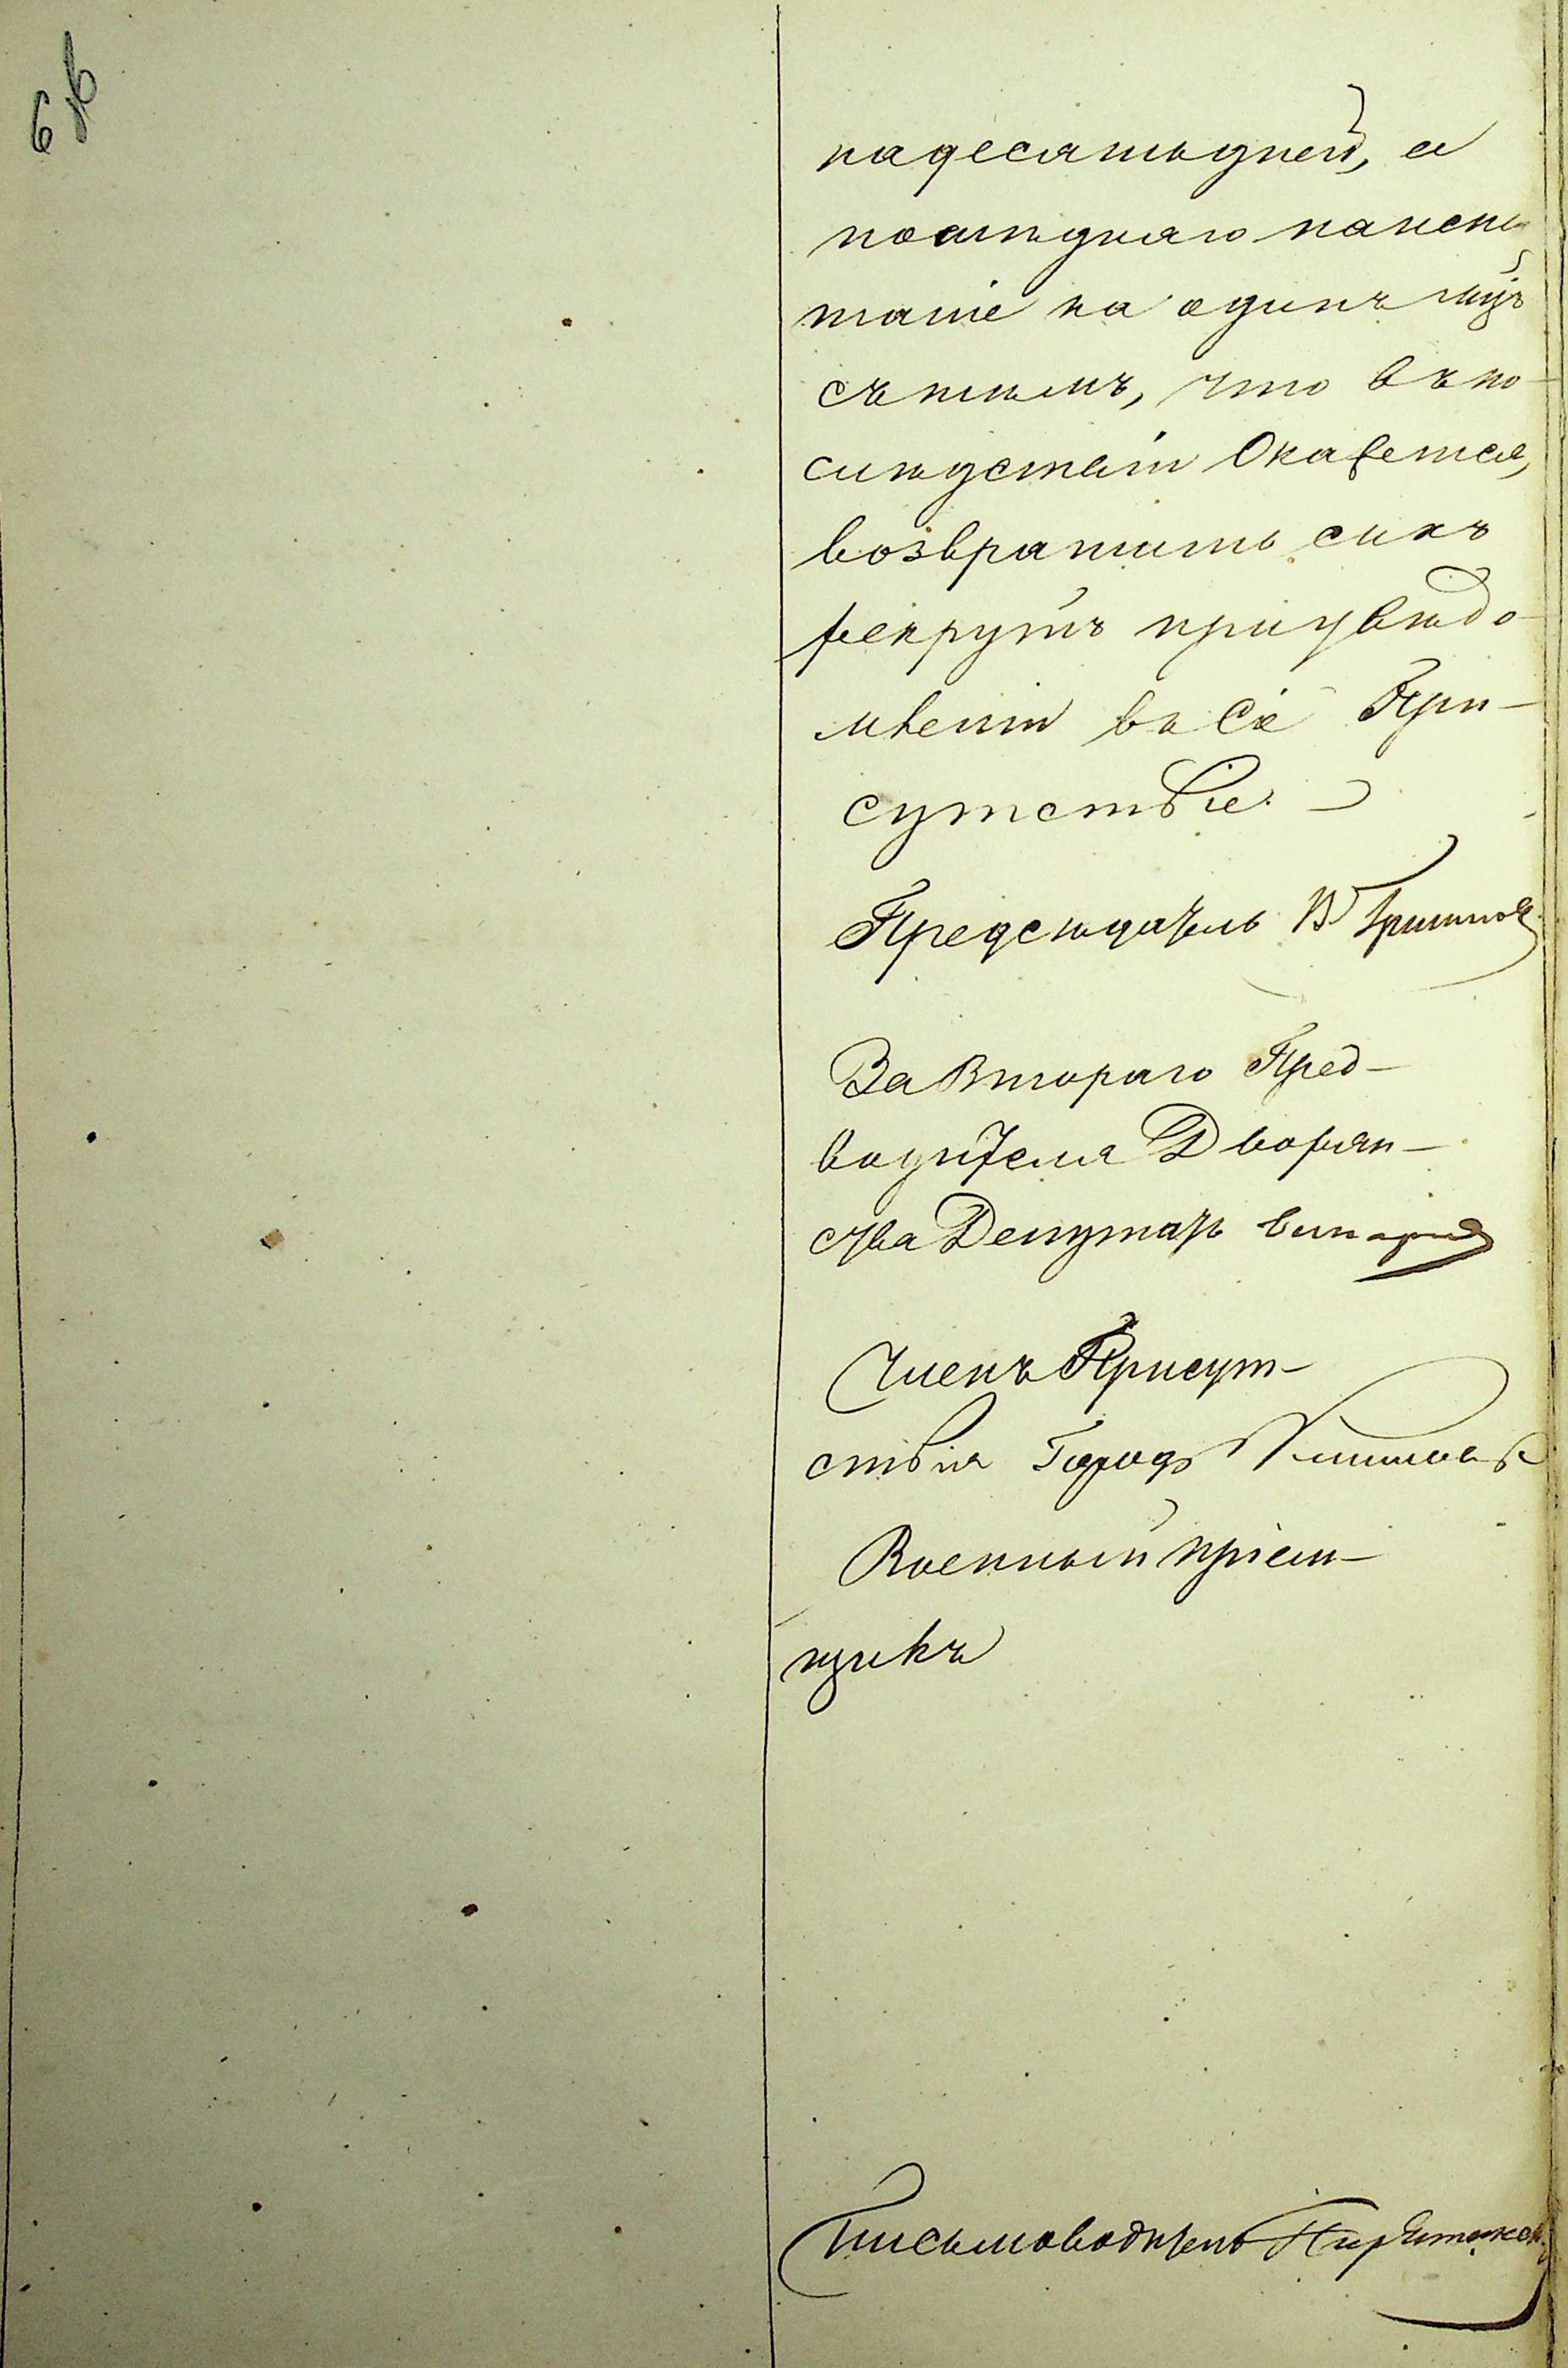 на десять дней, а
послѣдняго на испы
таніе на одинъ мцъ
съ тѣмъ, что въ по-
слѣдствіи Окажется,
возвратить сихъ
рекрутъ при увѣдо-
мленіи въ Сіе При-
сутствіе.
Председатель В
За Втораго Пред-
водителя Дворян-
ства Депутатъ
Членъ Присут-
ствія Город
Военный пріем-
щикъ
Письмоводитель